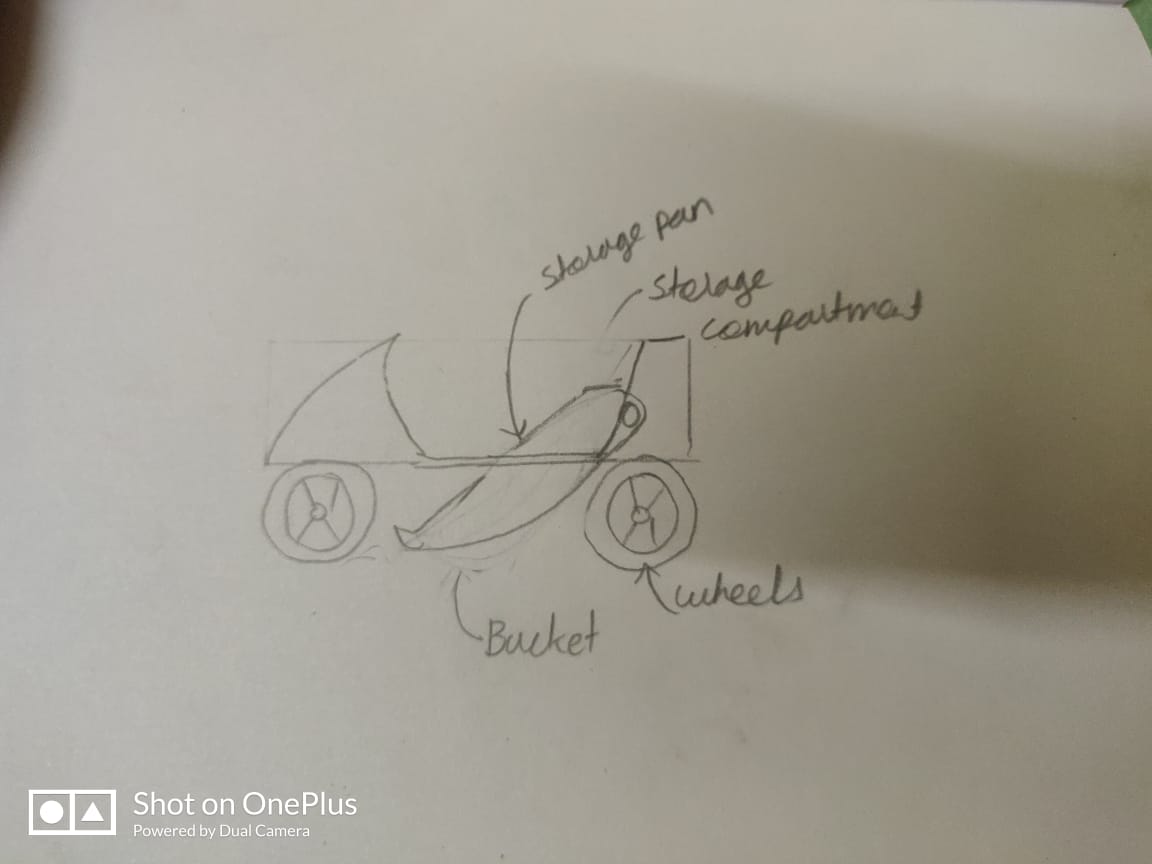 storage pan
storage
compartment
wheels
Bucket
Shot on OnePlus
Powered by Dual Camera